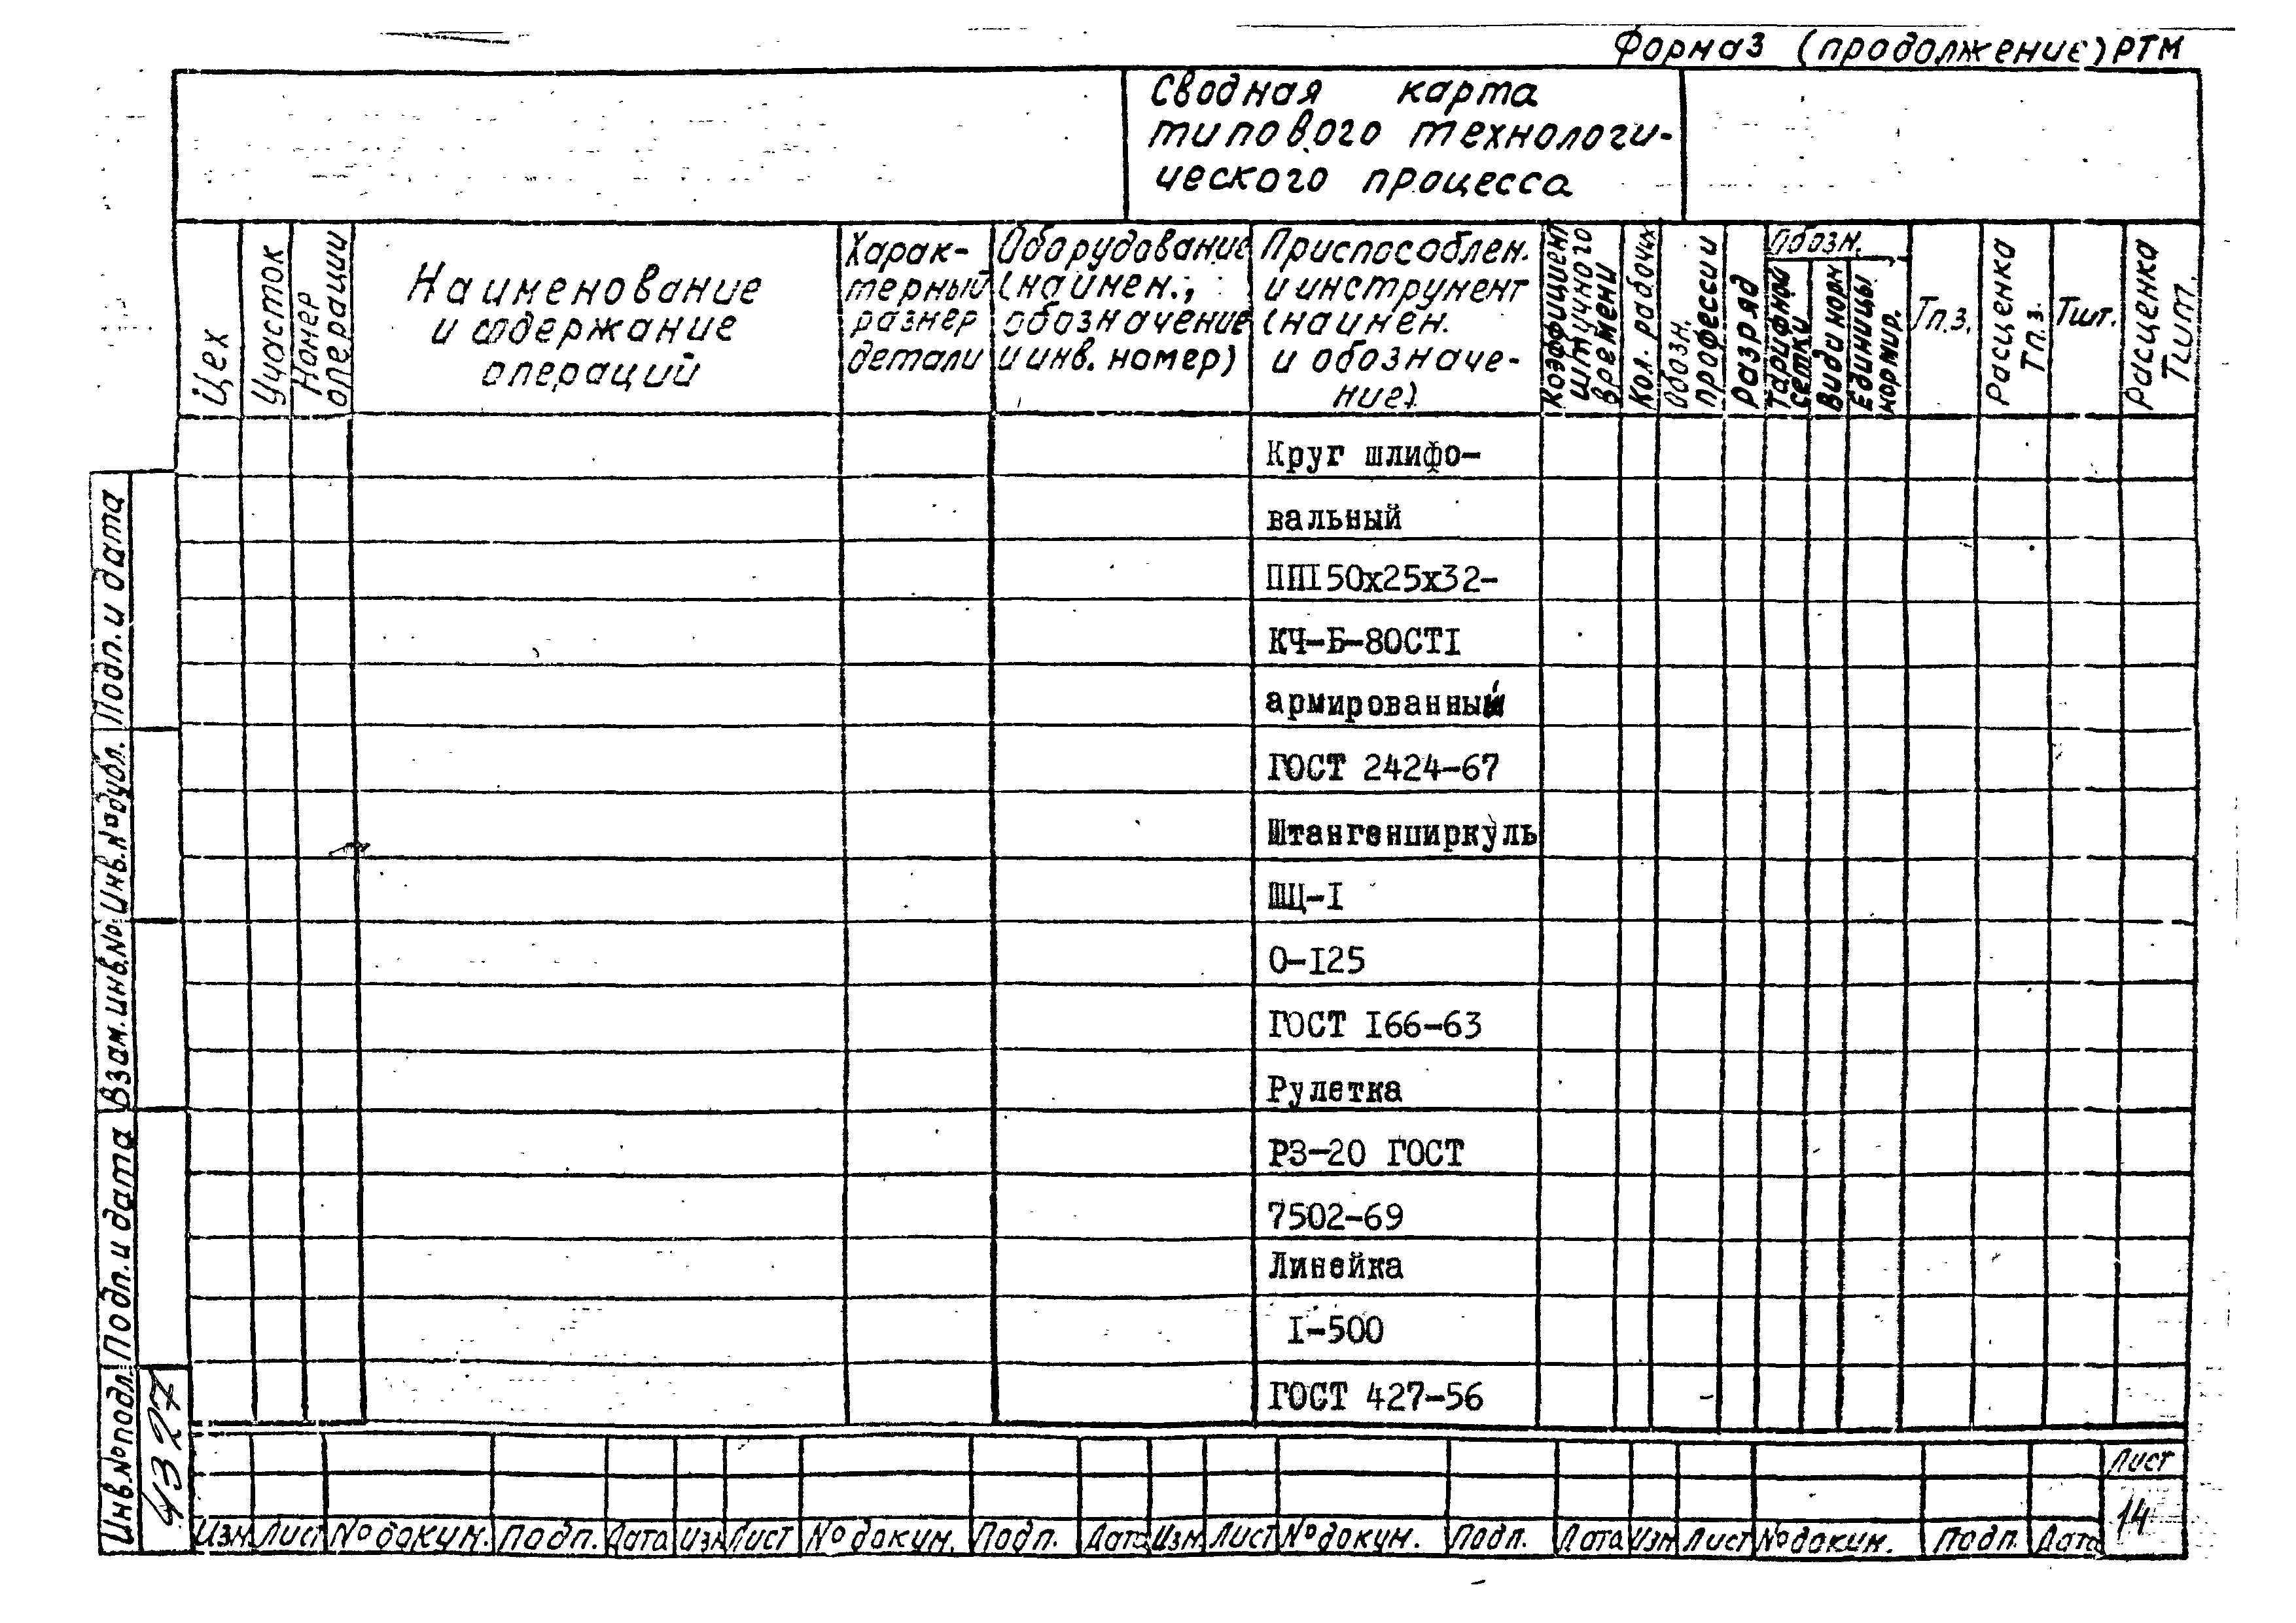 Форма3 (продолжение) РТМ
Сводная карта
типового технологи-
ческого процесса
Цех
Участок
Номер
операции
Наименование
и содержание
операций
Харак-
терный
размер
детали
Оборудование
(наимен.,
обозначение
и инв. номер)
Приспособлен.
и инструмент
(наимен.
и обозначе-
ние).
Коэффициент
штучного
времени
Кол. рабочих
Обозн.
профессии
Разряд
Обозн.
Тарифной
сетки
Вида норм
Единицы
нормир.
Тп.з.
Расценка
Тп.з.
Тшт.
Расценка
Тшт.
Круг шлифо-
вальный
ПП150х25х32-
КЧ-Б-80СТ1
армированный
ГОСТ 2424-67
Штангенциркуль
ШЦ-I
0-I25
ГОСТ I66-63
Рулетка
РЗ-20 ГОСТ
7502-69
Линейка
I-500
ГОСТ 427-56
Подп. и дата
Инв.№дубл.
Взам.инв.№
Подп. и дата
Инв.№подл.
4327
Изм Лист №докум. подп. Дата Изм Лист №докум. Подп. Дата Изм. Лист №докум. Подп. Дата Изм Лист №докум. подп. Дата
Лист
14